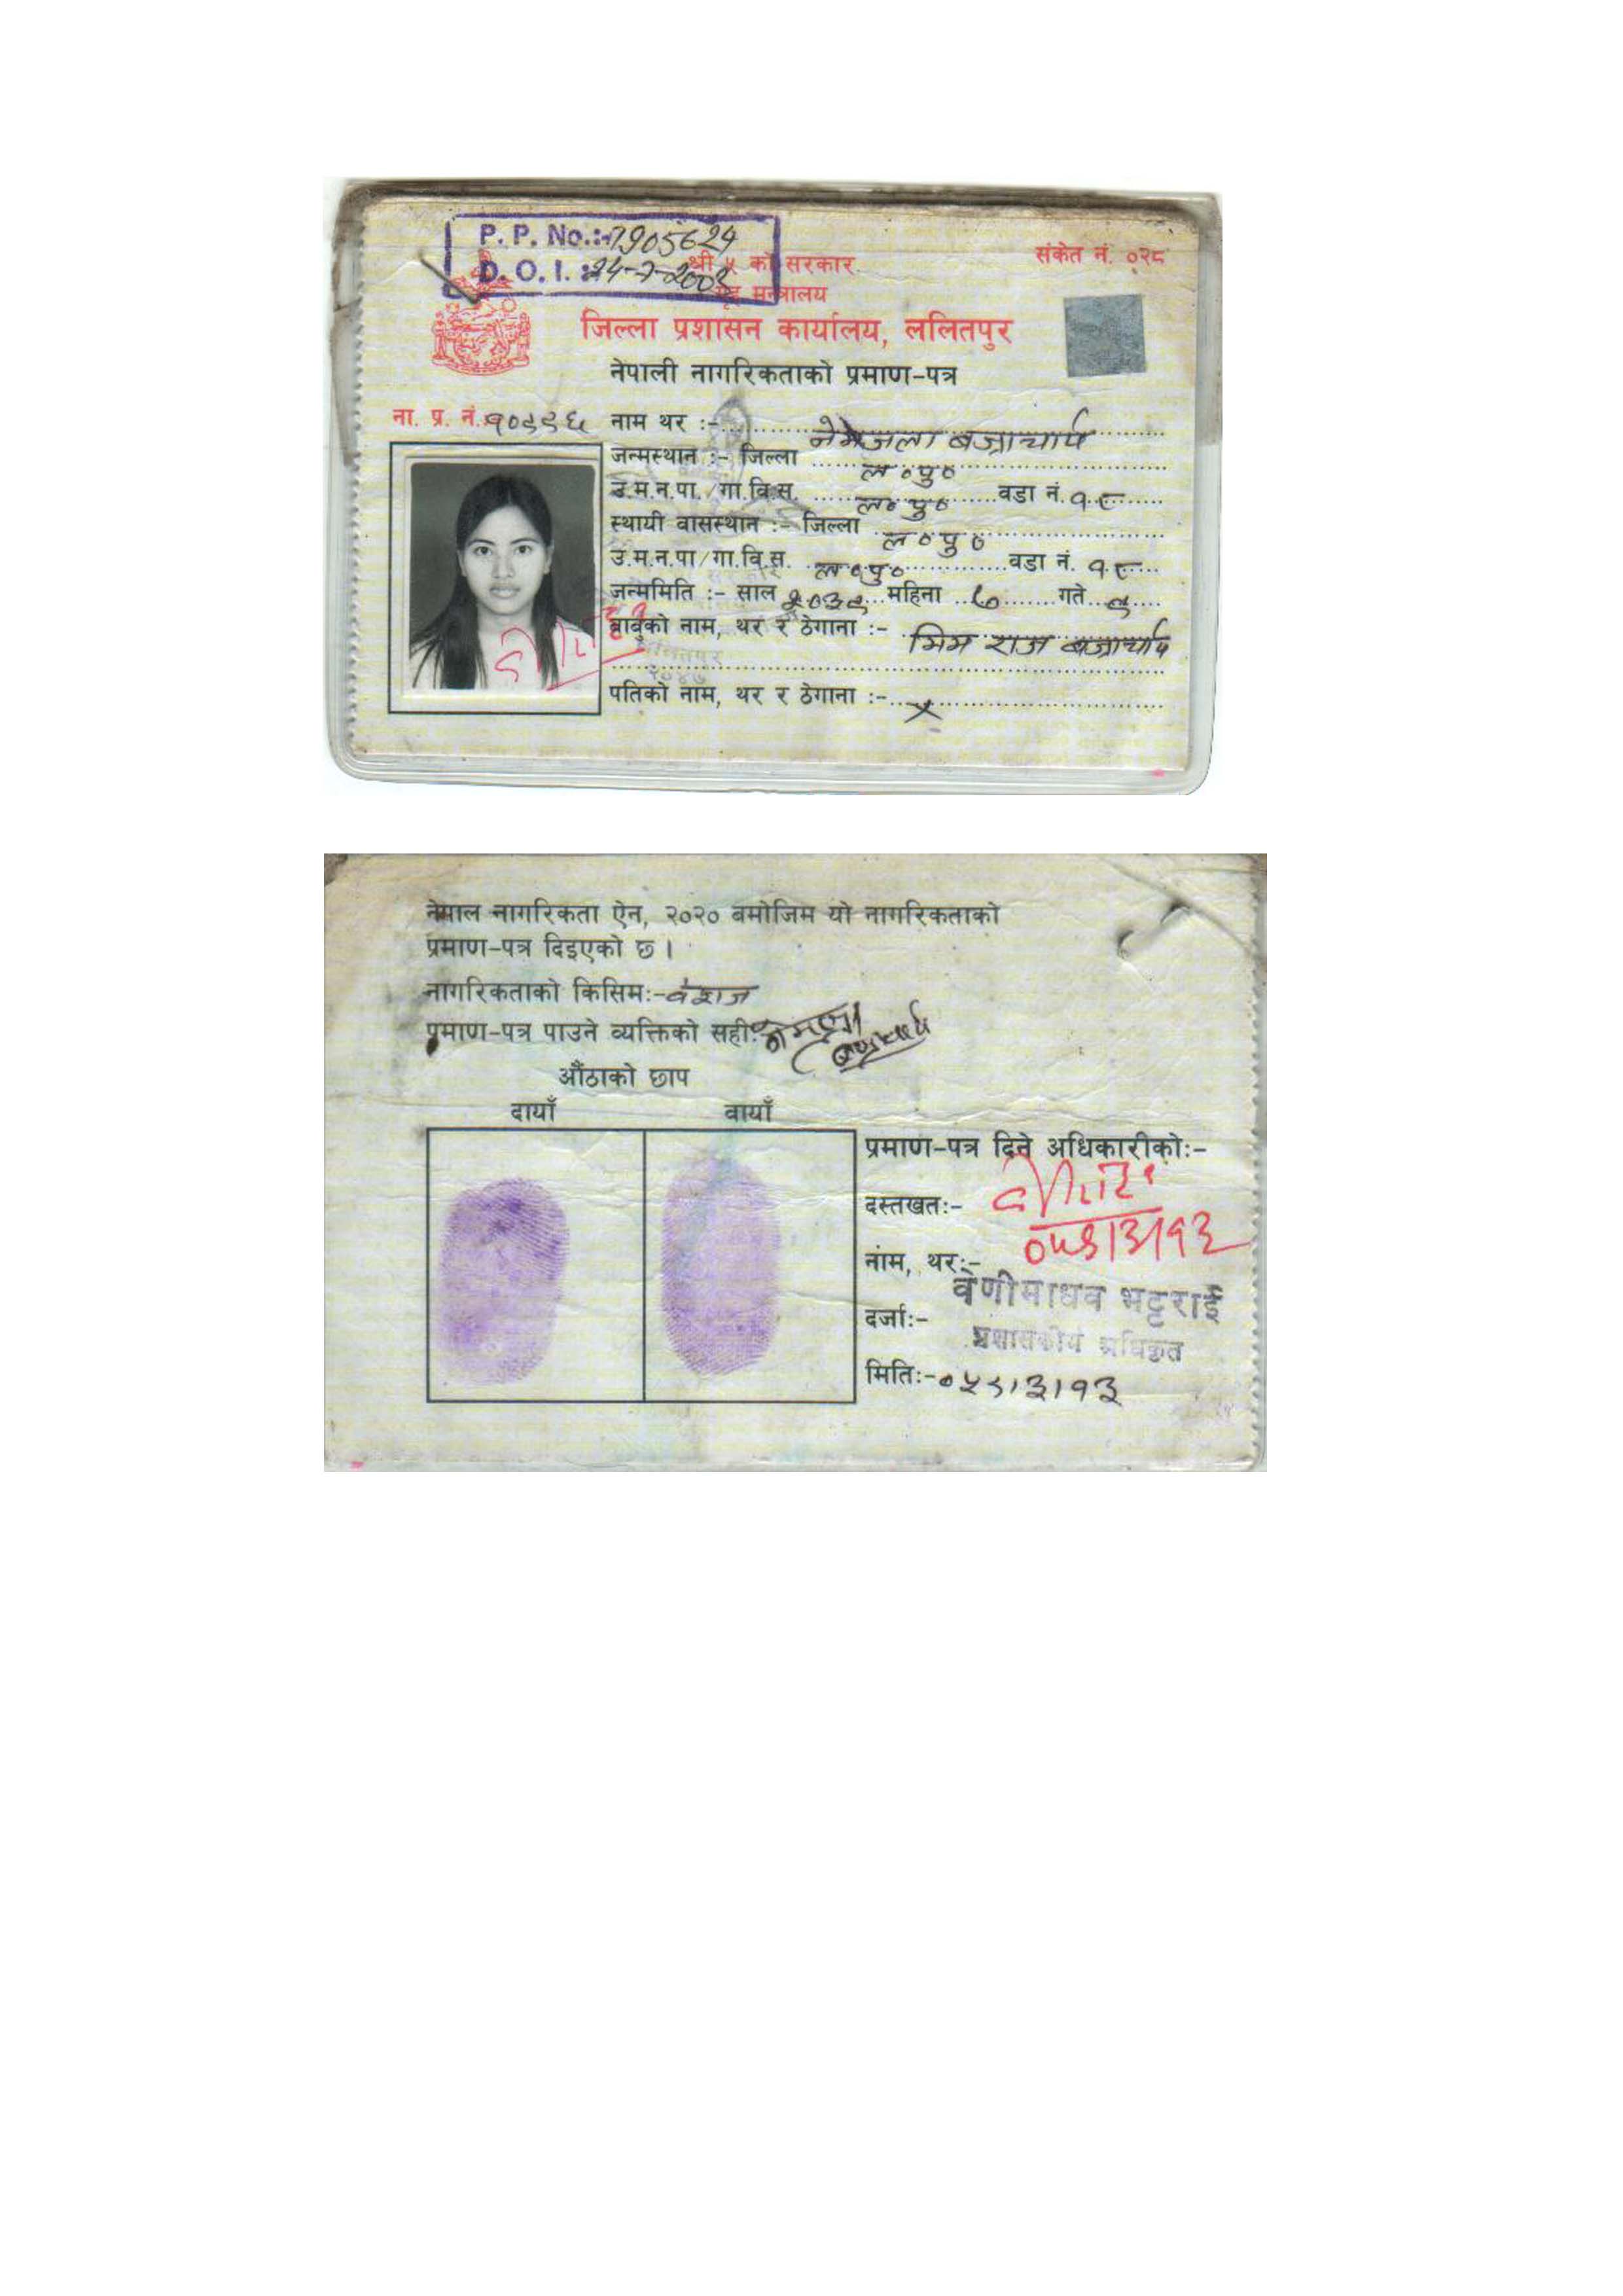 P. P. No.:- 1905624
D. O. I. :- 24-7-2003
श्री ५ को सरकार
संकेत नं. ०२८
गृह मन्त्रालय
जिल्ला प्रशासन कार्यालय, ललितपुर
नेपाली नागरिकताको प्रमाण-पत्र
ना. प्र. नं. १०९९६
नाम थर :- बज्राचार्य
जन्मस्थान :- जिल्ला ल॰पु॰
उ.म.न.पा./गा.वि.स. ल॰पु॰ वडा नं. १८
स्थायी वासस्थान :- जिल्ला ल॰पु॰
उ.म.न.पा/गा.वि.स. ल॰पु॰ वडा नं. १८
जन्ममिति :- साल २०३९ महिना ७ गते ९
बाबुको नाम, थर र ठेगाना :- भिम राज बज्राचार्य
पतिको नाम, थर र ठेगाना :- ×
नेपाल नागरिकता ऐन, २०२० बमोजिम यो नागरिकताको
प्रमाण-पत्र दिइएको छ ।
नागरिकताको किसिमः- वंशज
प्रमाण-पत्र पाउने व्यक्तिको सहीः
औंठाको छाप
दायाँ वायाँ
प्रमाण-पत्र दिने अधिकारीकोः-
दस्तखतः-
०५९।३।१३
नाम, थरः-
वेणीमाधव भट्टराई
दर्जाः-
प्रशासकीय अधिकृत
मितिः- ०५९।३।१३